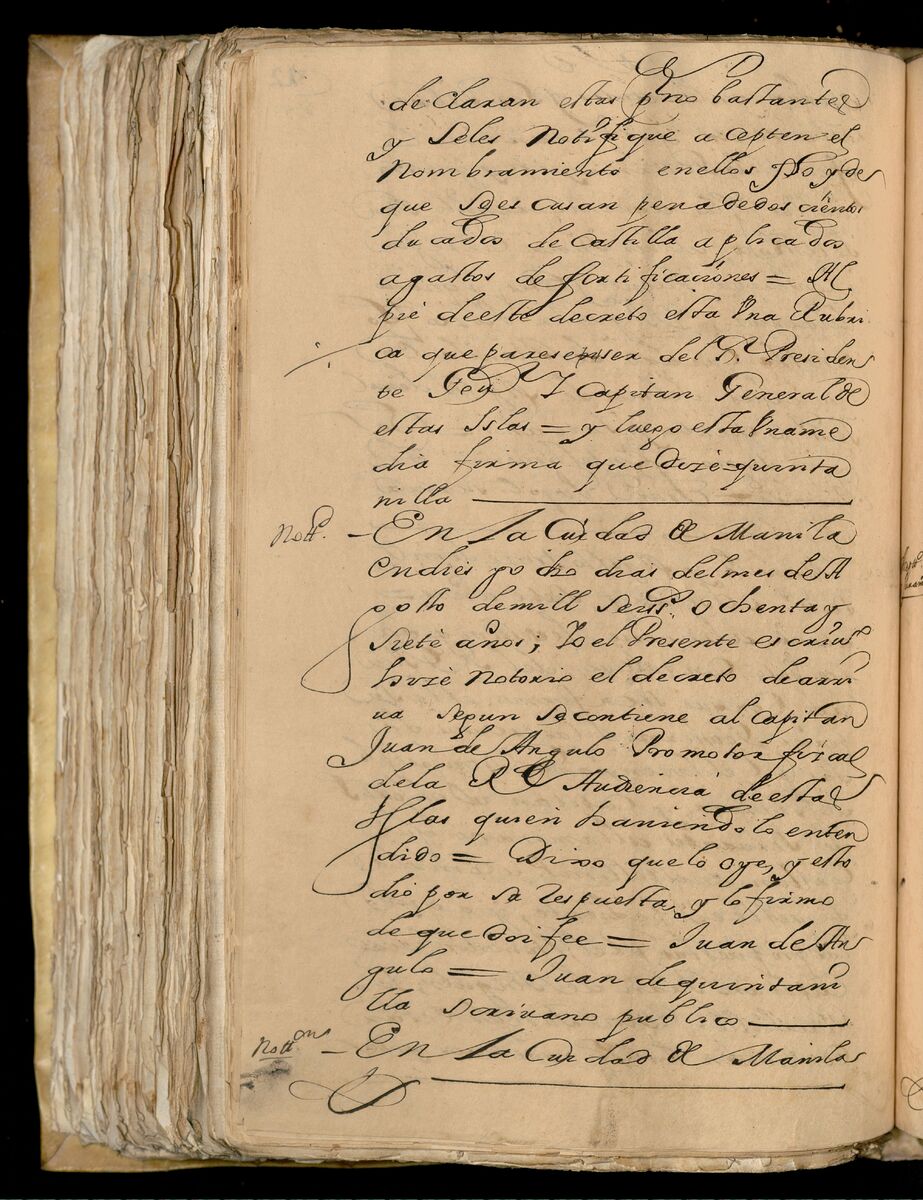 de claran estas pno bastantes
y Seles Notifique acepten el
Nombramiento en ellos fho y de
que se escusan pena dedos cientos
ducados de Castilla aplicados
a gastos de fortificaciones = Al
pie deeste decreto esta Vna Rubri
ca que parese ser del S. Presiden
te Gov Y Capitan General de
estas Islas = y luego esta Vna me
dia firma que dize = quinta
nilla
Nott. - En La Ciudad de Manila
en dies y o cho dias del mes de A
gosto demill Seiss. Ochenta y
siete años; Yo el Presente escriuo
hize Notorio el decreto de arri
ua segun se contiene al Capitan
Juan de Angulo Promotor fiscal
dela Rl Audiencia de estas
Yslas quien hauiendolo enten
dido = Dixo que lo oye, y esto
dio por su respuesta, y lo firmo
de que doi fee = Juan de An
gulo = Juan de quintani
lla scriuano publico
Notton - En La Ciudad de Manila